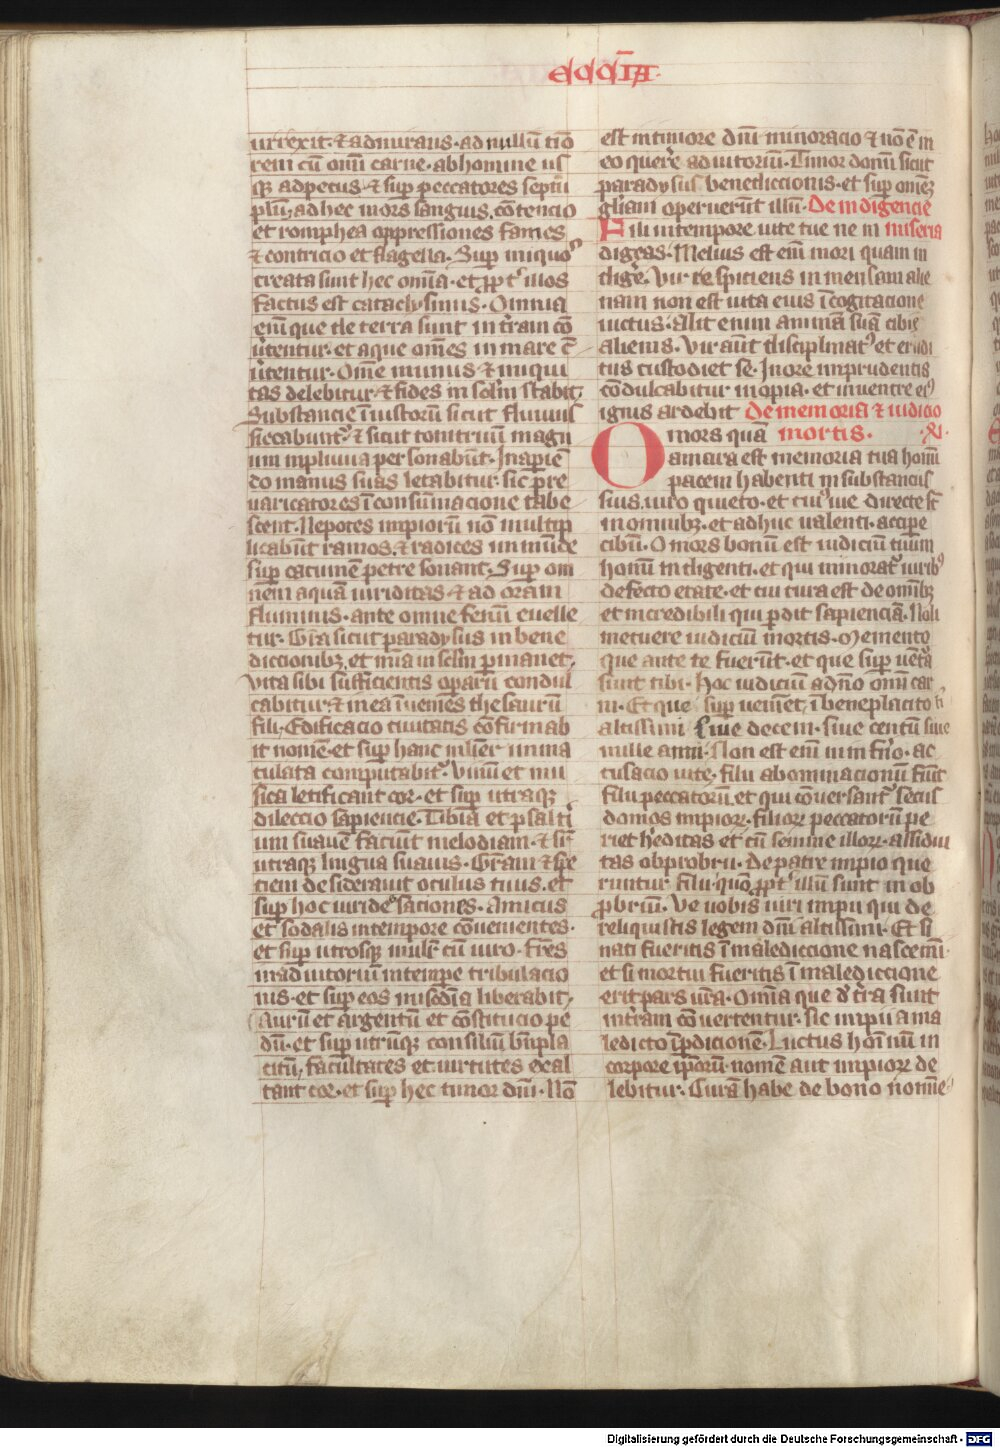 eccc̄ia
urrexit· ⁊ admirans· ad nullū tiō
rem cū om̄i carne· ab homine us
qꝫ ad petus· ⁊ sup̱ peccatores septū
plū; ad hec mors sanguis, cōtencio
et romphea oppressiones fames
⁊ contricio et flagella· Sup̱ iniquoˢ
creata sunt hec om̄ia· et ꝓpt̓ illos
factus est cataclysmus· Omnia
eni̅ que de terra sunt in t̓ram cō
u̓tentur· et aque om̄es in mare cō
u̓tentur· Om̄e munus ⁊ iniqui
tas delebitur· ⁊ fides in sc̄lm stabit;
Substancie īiustorū sicut fluuius
siccabunt᷑· ⁊ sicut tonitruū magn
um in pluuia personabūt· In apiē
do manus suas letabitur· sic p̱re
uaricatores ī consūmacione tabe
scent· Nepotes impiorū nō multip̱
licabūt ramos, ⁊ radices inmūde
sup̱ cacumē petre sonant· Sup̱ om
nem aquam uiriditas ⁊ ad oram
fluminis· ante omne fenū euelle
tur· Gr̄a sicut paradysus in bene
diccionibꝫ, et mīa in sc̄lm p̱manet;
Vita sibi sufficientis oꝑarū condul
cabitur ⁊ in ea īuenies thesaurū
fili; Edificacio ciuitatis cōfirmab
it nomē· et sup̱ hanc mlīer inma
culata computabit᷑· Vinū et mu
sica letificant cor· et sup̱ utraqꝫ
dileccio sapiencie· Tibia et psalti
um suauē faciūt melodiam· ⁊ sr̄
utraqꝫ lingua suauis· Grām ⁊ spē
ciem desiderauit oculus tuus· et
sup̱ hoc uirides saciones· Amicus
et sodalis in tempore cōuenientes·
et sup̱ utrosqꝫ mulr̄ cū uiro· Frēs
in adiutoriū in temp̱e tribulacio
nis· et sup̱ eos miscdīa liberabit;
Aurū et argentū et cōstitucio pe
dū· et sup̱ utrūqꝫ consiliū bn̄pla
citū; facultates et uirtutes exal
tant cor· et sup̱ hec timor dn̄i· Nō
est in timore dn̄i minoracio ⁊ nō ē in
eo querēre adiutoriū· Timor domī sicut
paradysus benediccionis· et sup̱ omēꝫ
gl̄iam operuerūt illū· De indigencie
Fili in tempore uite tue ne in miseria
digeas· Melius est eni̅ mori quam in
digēre· Vir respiciens in mensam alie
nam non est uita eius ī cogitacione
uictus· Alit enim animā suā cibis
alienis· Vir aūt disciplinat᷒ et erudi
tus custodiet se· In ore imprudentis
cōdulcabitur inopia· et in uentre ei᷒
ignis ardebit De memoria ⁊ iudicio
O mors quā mortis· ·XI·
amara est memoria tua homī
pacem habenti in substanciis
suis, uiro quieto· et cui᷒ uie directe st̄
in omnibꝫ· et adhuc ualenti· accip̱e
cibū· O mors bonū est iudiciū tuum
homī indigenti· et qui minorat᷑ uirib᷒
defecto etate· et cui cura est de om̄ibꝫ
et incredibili qui ꝑdit sapienciā· Noli
metuere iudiciū mortis· Memento
que ante te fuerūt· et que sup̱ uēt̓a
sunt tibi· Hoc iudiciū a dn̄o om̄i car
ni· Et que sup̱ueniēt, ī beneplacito ti
altissimi Siue decem· siue centū siue
mille anni· Non est eni̅ in inf̓no· ac
cusacio uite; filii abominacionū fiūt
filii peccatorū· et qui cōuersant᷑ secus
domos impioꝝ· filioꝝ peccatorū pe
riet h̓editas et cū semine illoꝝ· assidui
tas obprobrii· De patre impio que
runtur filii· quō ꝓpt̓ illū sunt in ob
ꝓbriū· Ve uobis uiri impii qui de
reliquistis legem dn̄i altissimi· Et si
nati fueritis ī malediccione nascemī·
et si mortui fueritis ī malediccione
erit pars ur̄a· Om̄ia que d̓ t̓ra sunt
in t̓ram cōuertentur· sic impii a ma
ledicto ī ꝑdicionē· Luctus homī num in
corpore ip̄orū· nomē aut impioꝝ de
lebitur· Curā habe de bono nomīe
Digitalisierung gefördert durch die Deutsche Forschungsgemeinschaft - DFG